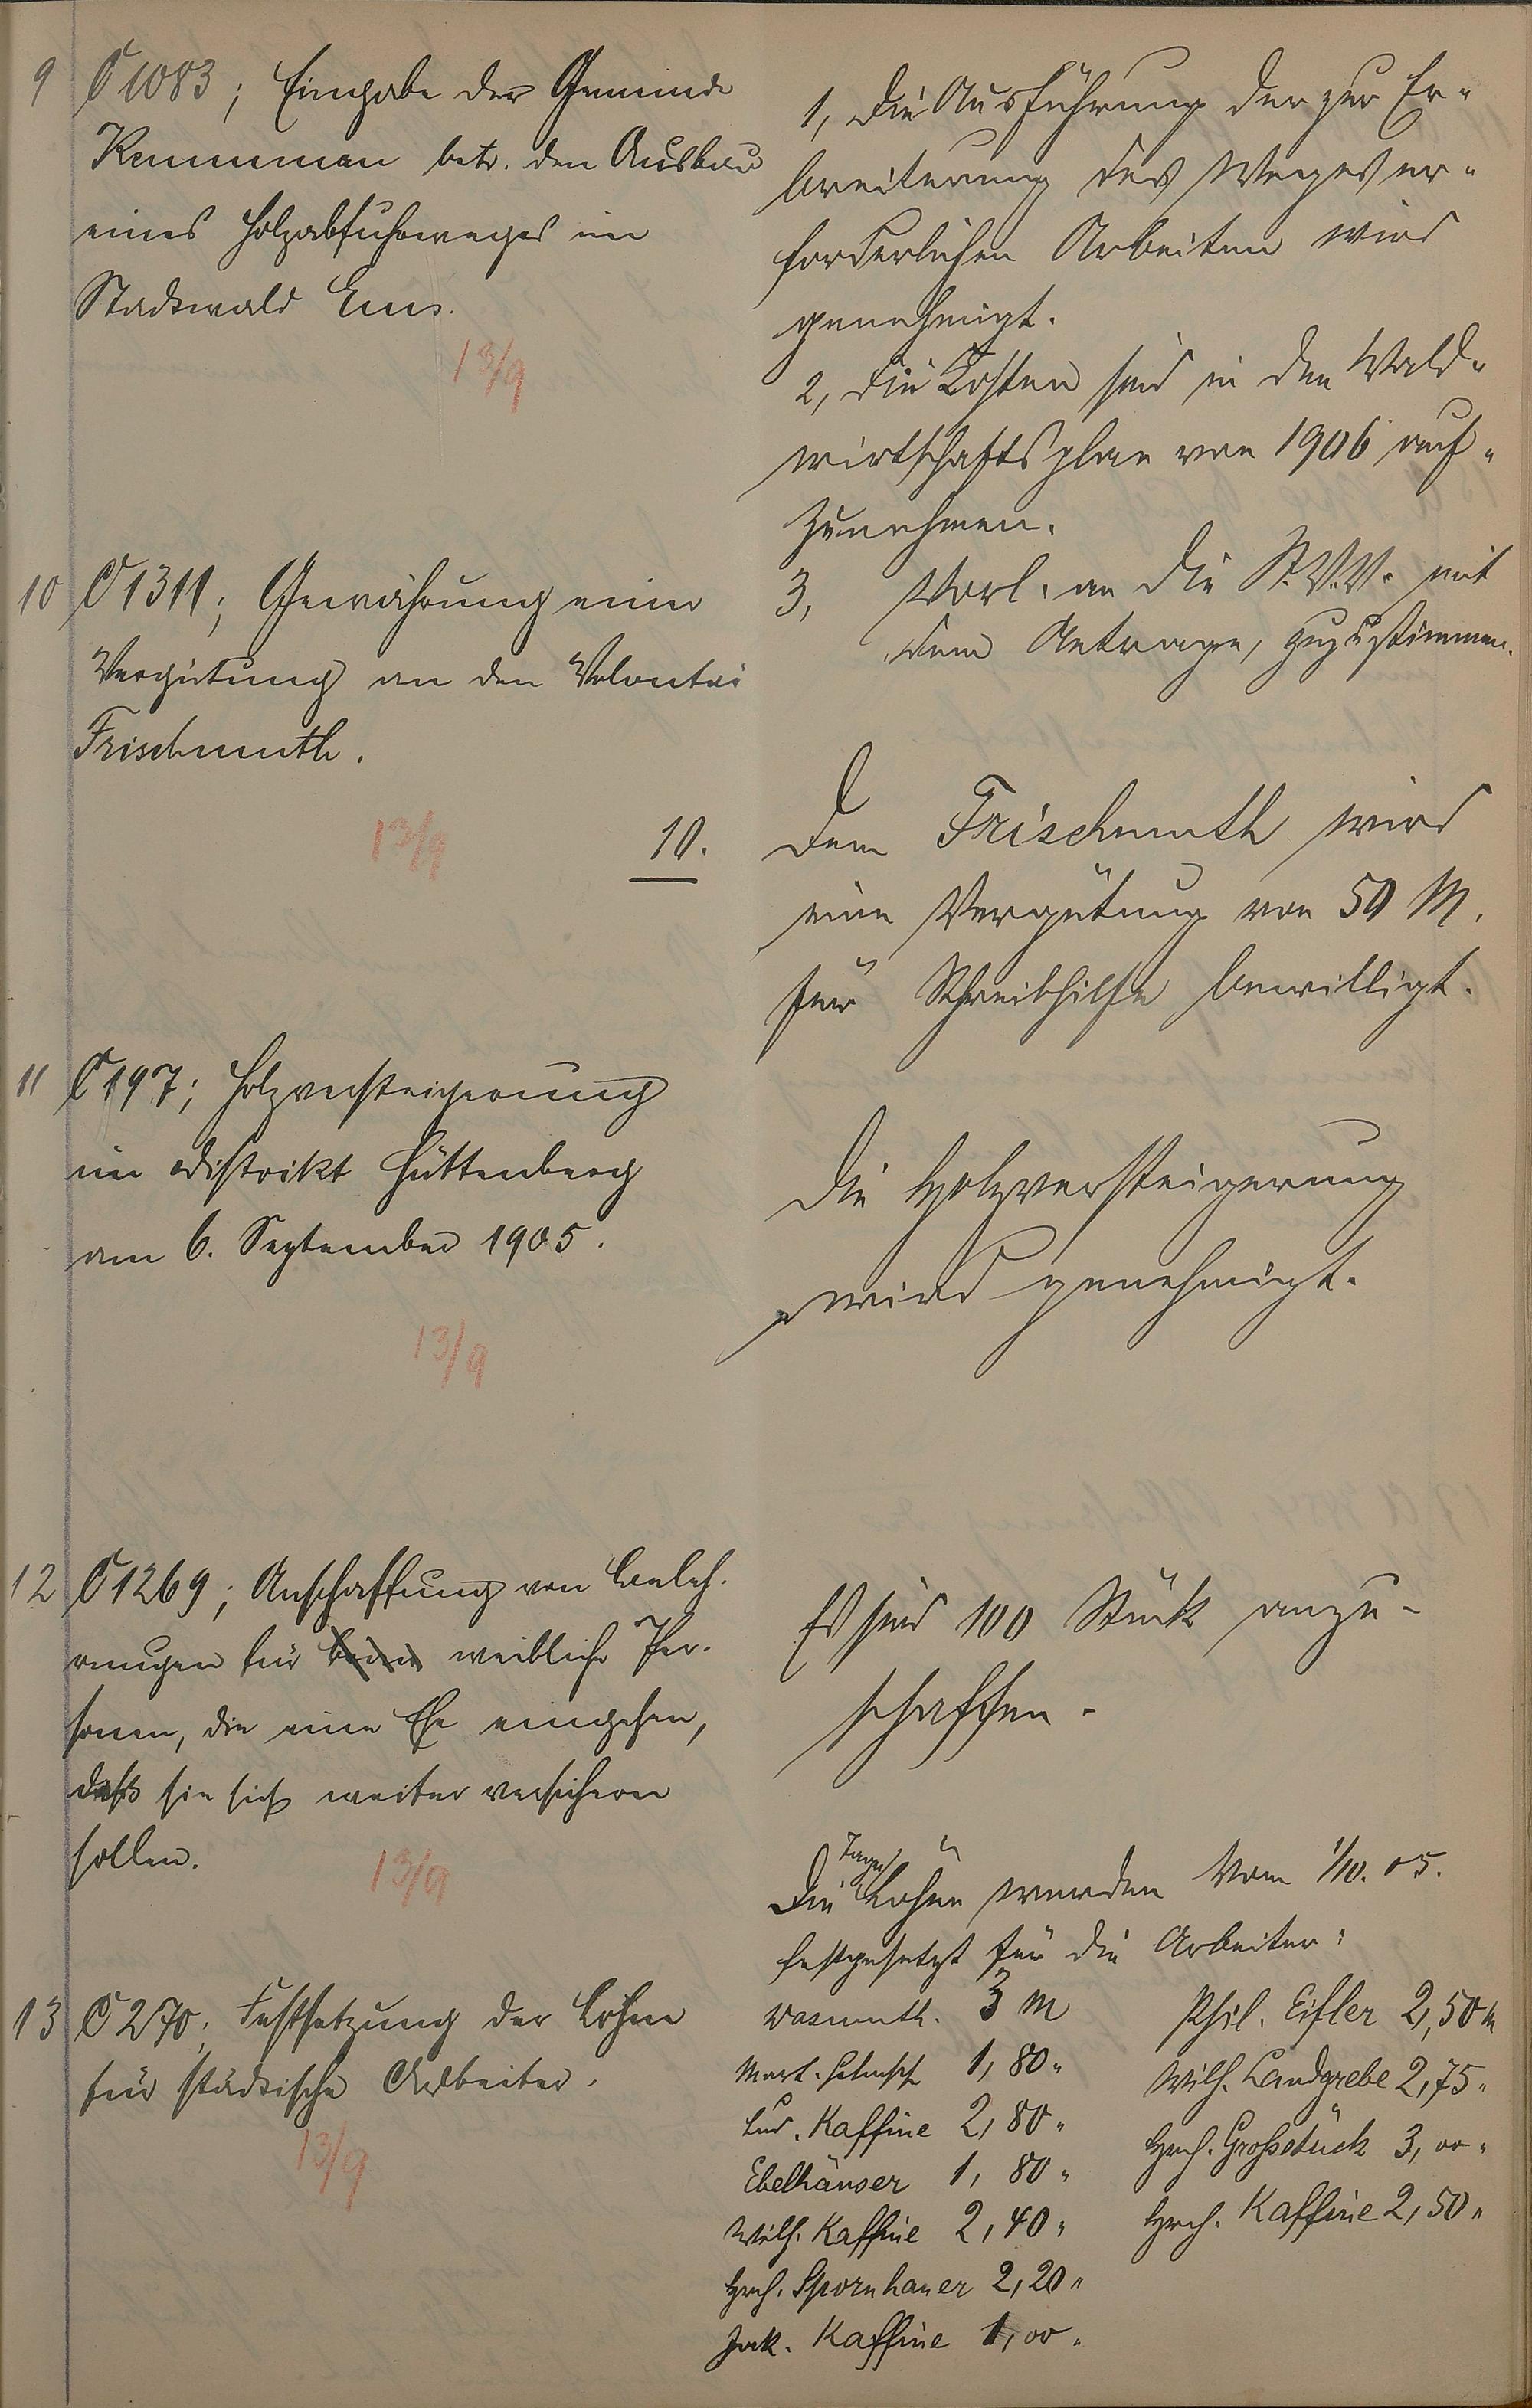 9 C 1083; Eingabe der Gemeinde
Kemmenau betr. den Ausbau
eines Holzabfuhrweges im
Stadtwald Ems.
13/9
1, Die Ausführung der zur Er-
breiterung des Weges er-
forderlichen Arbeiten wird
genehmigt.
2, Die Kosten sind in den Wald-
wirtschaftsplan von 1906 auf-
zunehmen.
3, Vorl. an die St.V.V. mit
dem Antrage, zuzustimmen.
10 C 1311; Gewährung einer
Vergütung an den Volontär
Frischmuth.
13/9
10. Dem Frischmuth wird
eine Vergütung von 50 M.
für Schreibhilfe bewilligt.
11 C 197; Holzversteigerung
im Distrikt Hüttenberg
am 6. September 1905.
13/9
Die Holzversteigerung
wird genehmigt.
12 C 1269; Anschaffung von Beleh-
rungen für weibliche Per-
sonen, die eine Ehe eingehen,
daß sie sich weiter versichern
sollen.
13/9
Es sind 100 Stück anzu-
schaffen.
13 C 270; Festsetzung der Löhne
für städtische Arbeiter.
13/9
Die Tage Löhne werden vom 1/10. 05.
festgesetzt für die Arbeiter:
Wasmuth. 3 M
Mart. 1,80 "
Lud. Kaffine 2,80 "
Ebelhäuser 1,80 "
Wilh. Kaffine 2,40 "
Hrch. Spornhauer 2,20 "
Jak. Kaffine 1,00 "
Phil. Eifler 2,50 M
Wilh. Landgrebe 2,75 "
Hrch. Großstück 3,00 "
Hrch. Kaffine 2,50 "